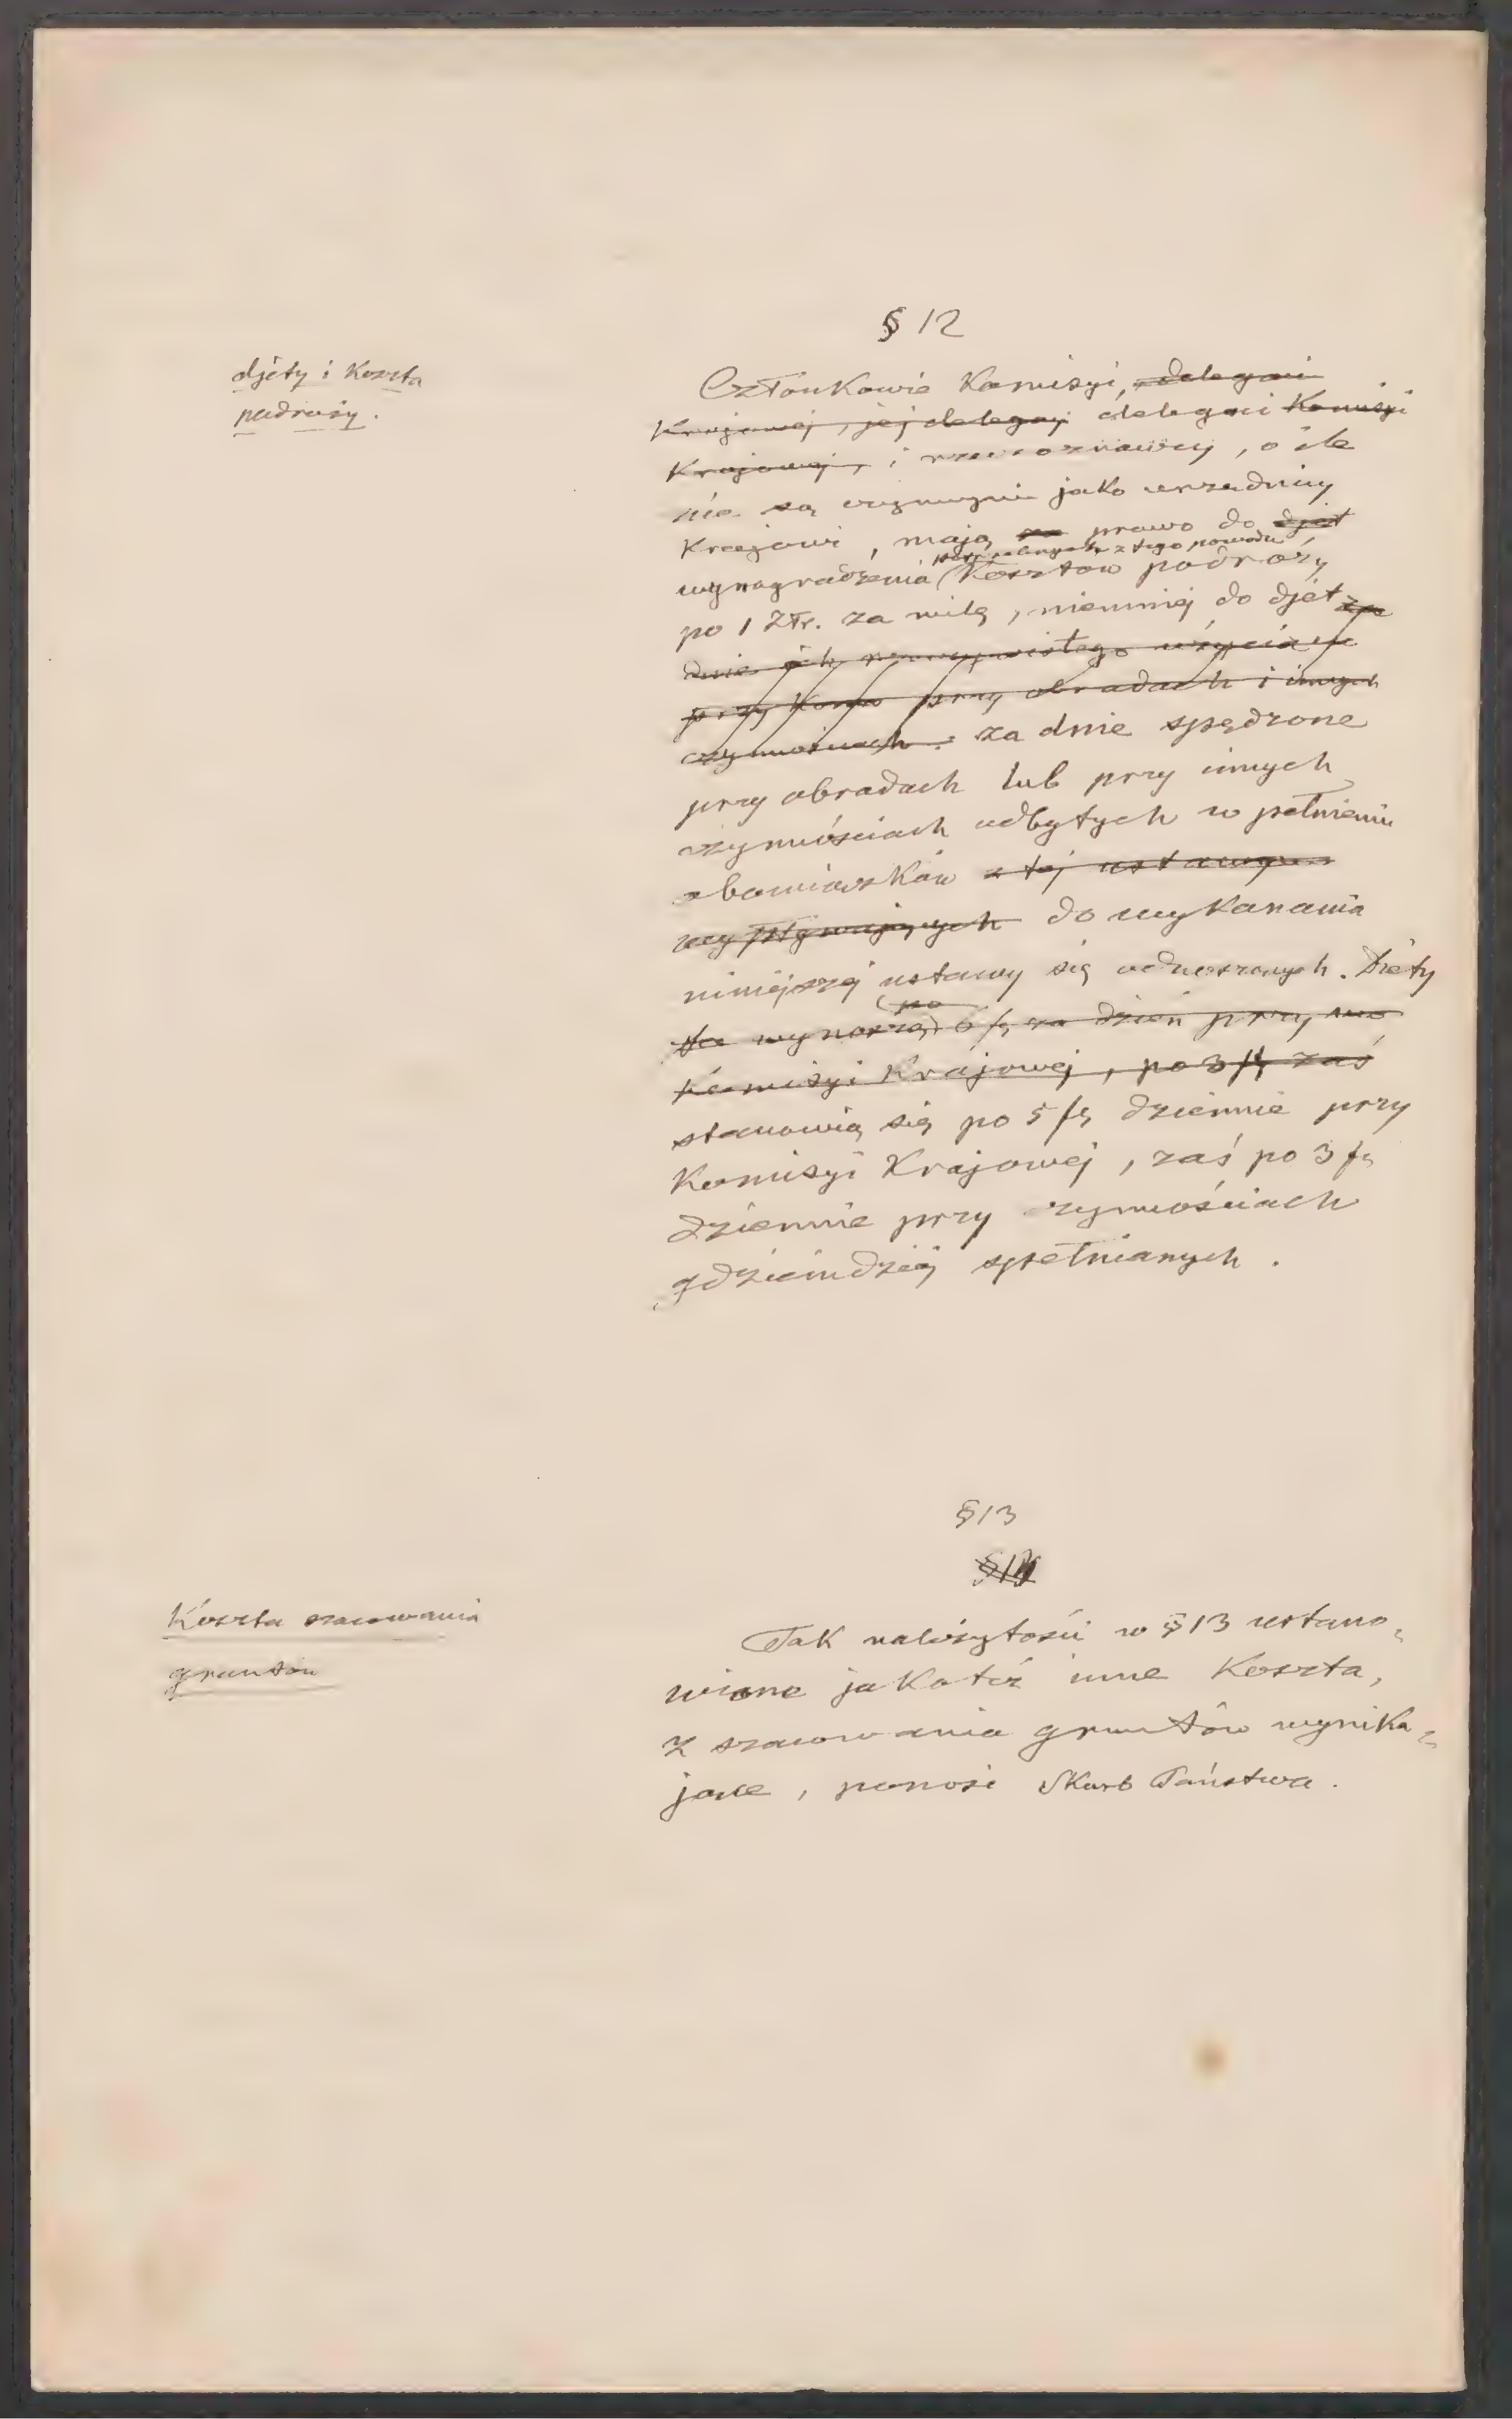 § 12
djéty i Koszta
podroży.
Członkowie Komisyi, delegaci
Krajowéj, jéj delegacyi delegaci Komisyi
Krajowéj, i rzeczoznawcy, o ile
nie są czynnymi jako urzędnicy
Krajowi, mają za prawo do djét
z tego powodu
wynagrodzenia Kosztów podróży
po 1 Złr. za milę, niemniéj do djét za
dnie ich rzeczywistego użycia w
przy Komis przy obradach i innych
czynnościach. za dnie spędzone
przy obradach lub przy innych
czynnościach odbytych w pełnieniu
obowiązków z téj ustawy
wypływających do wykonania
niniejszéj ustawy się odnoszących. Diéty
po
te wynoszą 6 fl za dzień przy
Komisyi Krajowéj, po 3 fl zaś
stanowią się po 5 fl dziennie przy
Komisyi Krajowéj, zaś po 3 fl
dziennie przy czynnościach
gdzieindziéj spełnianych.
§ 13
Koszta szacowania
gruntów
Tak należytości w § 13 ustano-
wione jakotéż inne Koszta,
z szacowania gruntów wynika-
jące, ponosi Skarb Państwa.